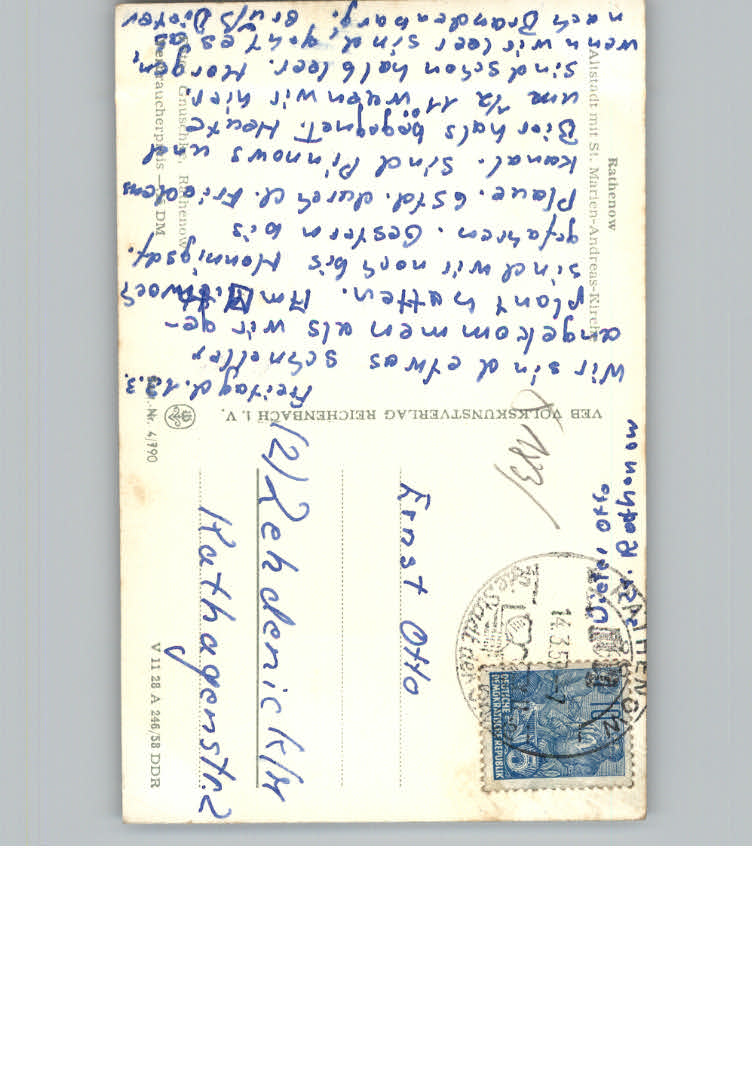 Rathenow
Altstadt mit St. Marien-Andreas-Kirche
Freitag d. 13.3.
Wir sind etwas schneller
angekommen als wir ge-
plant hatten. Am Mittwoch
sind wir noch bis Hennigsdf.
gefahren. Gestern bis
Plaue. 6 Std. durch d. Friedens
kanal. Sind Pinnows und
Bierhals begegnet. Heute
um 1/2 11 waren wir hier.
sind schon halb leer. Morgen,
wenn wir leer sind, geht es
nach Brandenburg. Gruß Dieter
Gnuschke, Rathenow
Verbraucherpreis — DM
VEB VOLKSKUNSTVERLAG REICHENBACH I. V.
Nr. 4/790
V 11 28 A 246/58 DDR
Dieter Otto
z. Zt. Rathenow
RATHENOW
14.3.59
Stadt der
10
DEUTSCHE
DEMOKRATISCHE REPUBLIK
Ernst Otto
(2) Zehdenick/H
Kathagenstr. 2